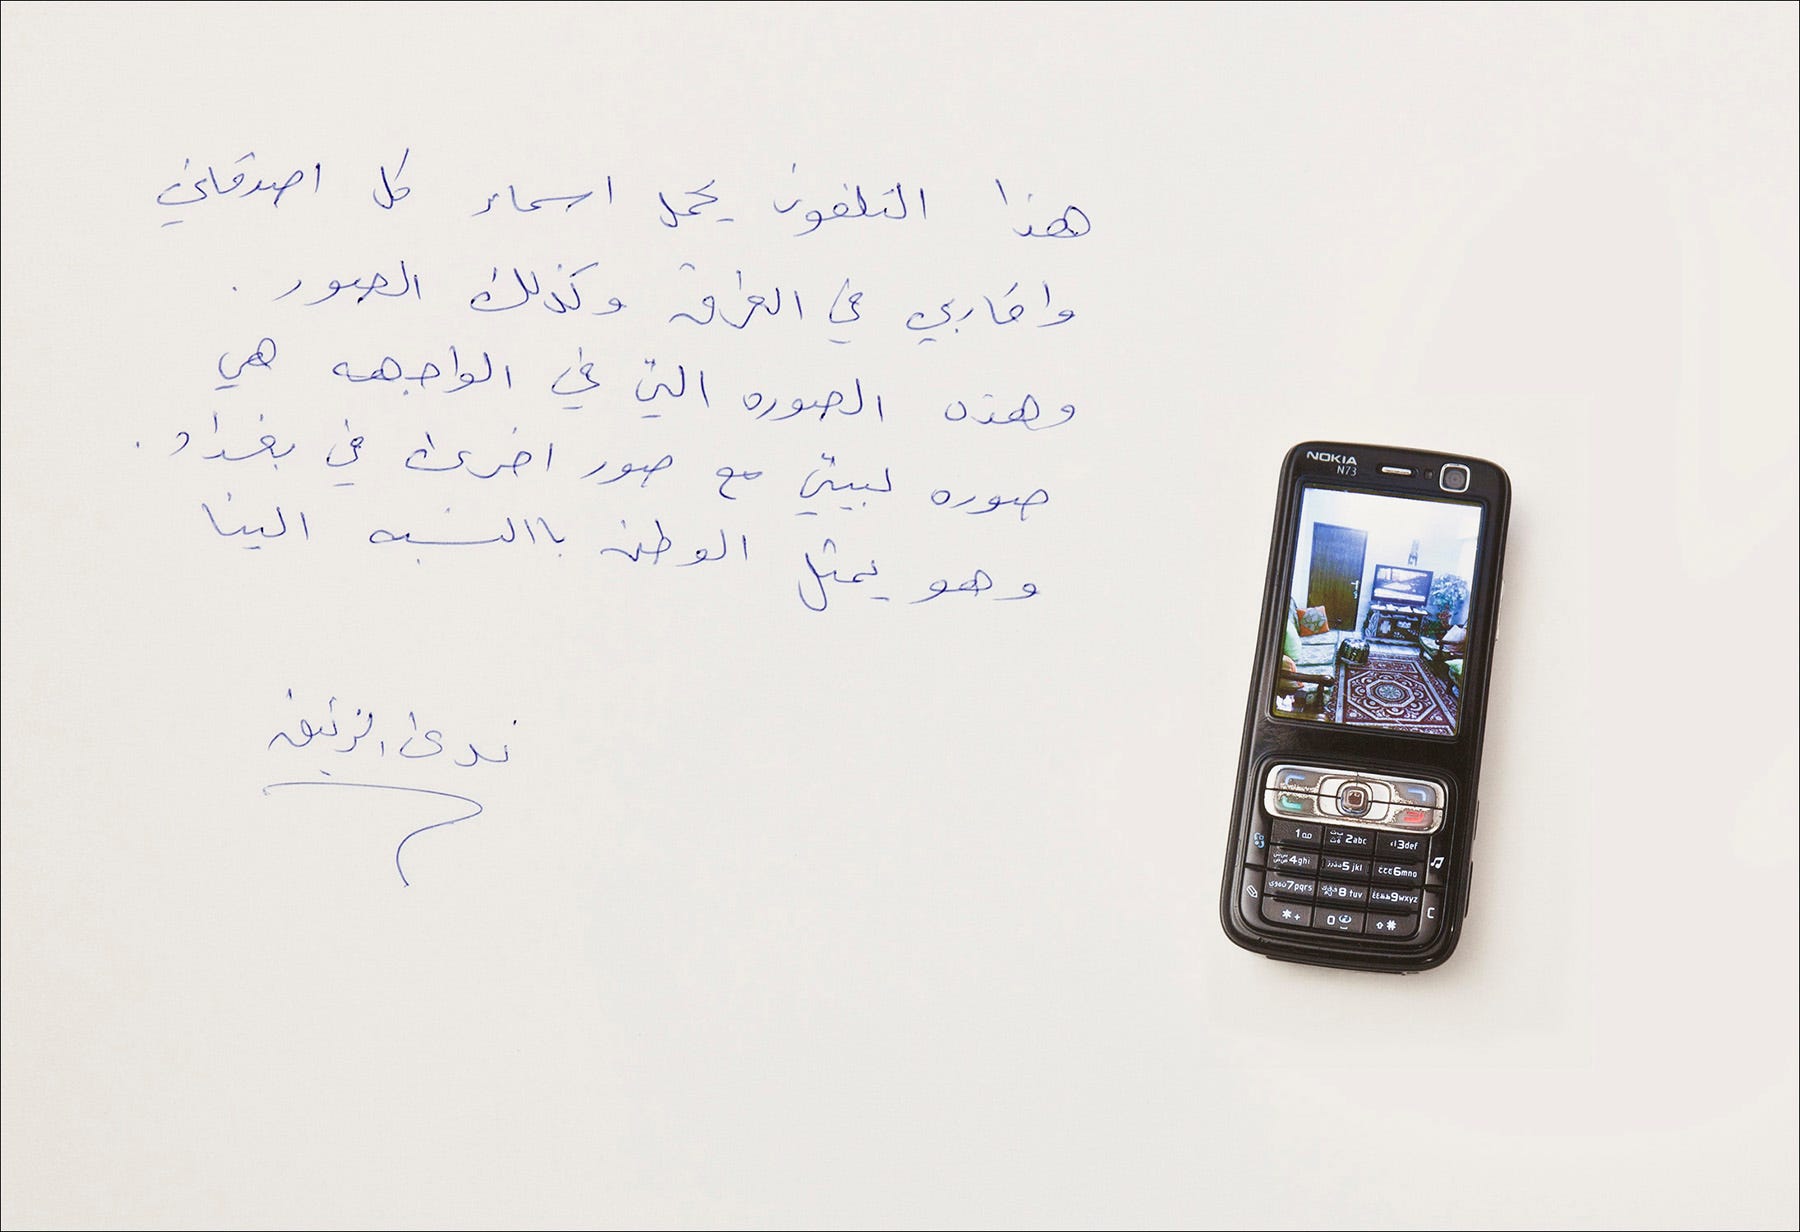 هذا التلفون يحمل اسماء كل اصدقائي
واقاربي في العراق وكذلك الصور .
وهذه الصوره التي في الواجهه هي
صوره لبيتي مع صور اخرى في بغداد .
وهو يمثل الوطن باالنسبه الينا
ندى
NOKIA
N73
1
2abc
3def
4ghi
5jkl
6mno
7pqrs
8tuv
9wxyz
*+
0
#
C